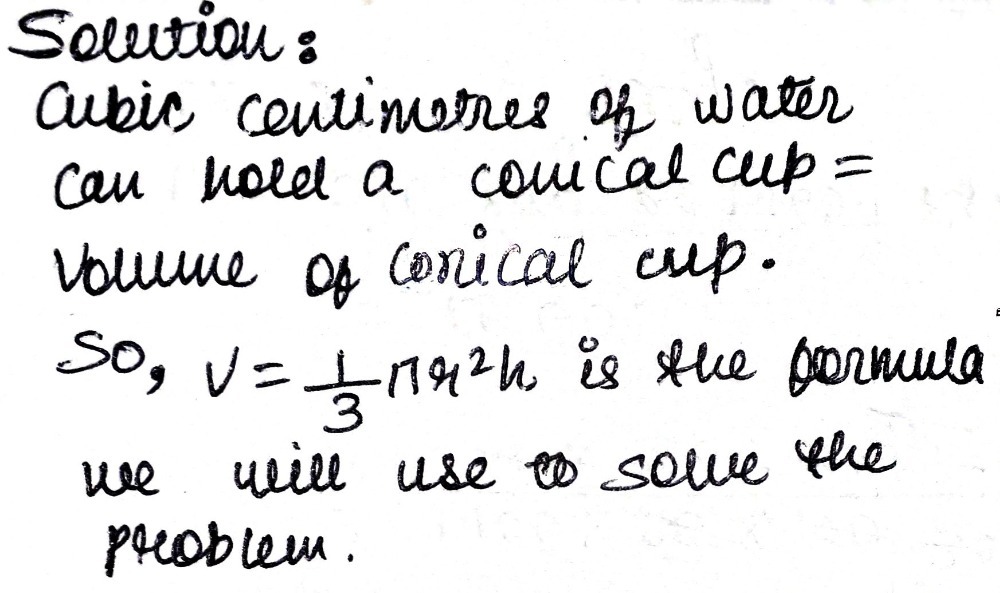 Solution:
Cubic centimetres of water
can hold a conical cup =
volume of conical cup.
So, V = 1/3 πr²h is the formula
we will use to solve the
problem.